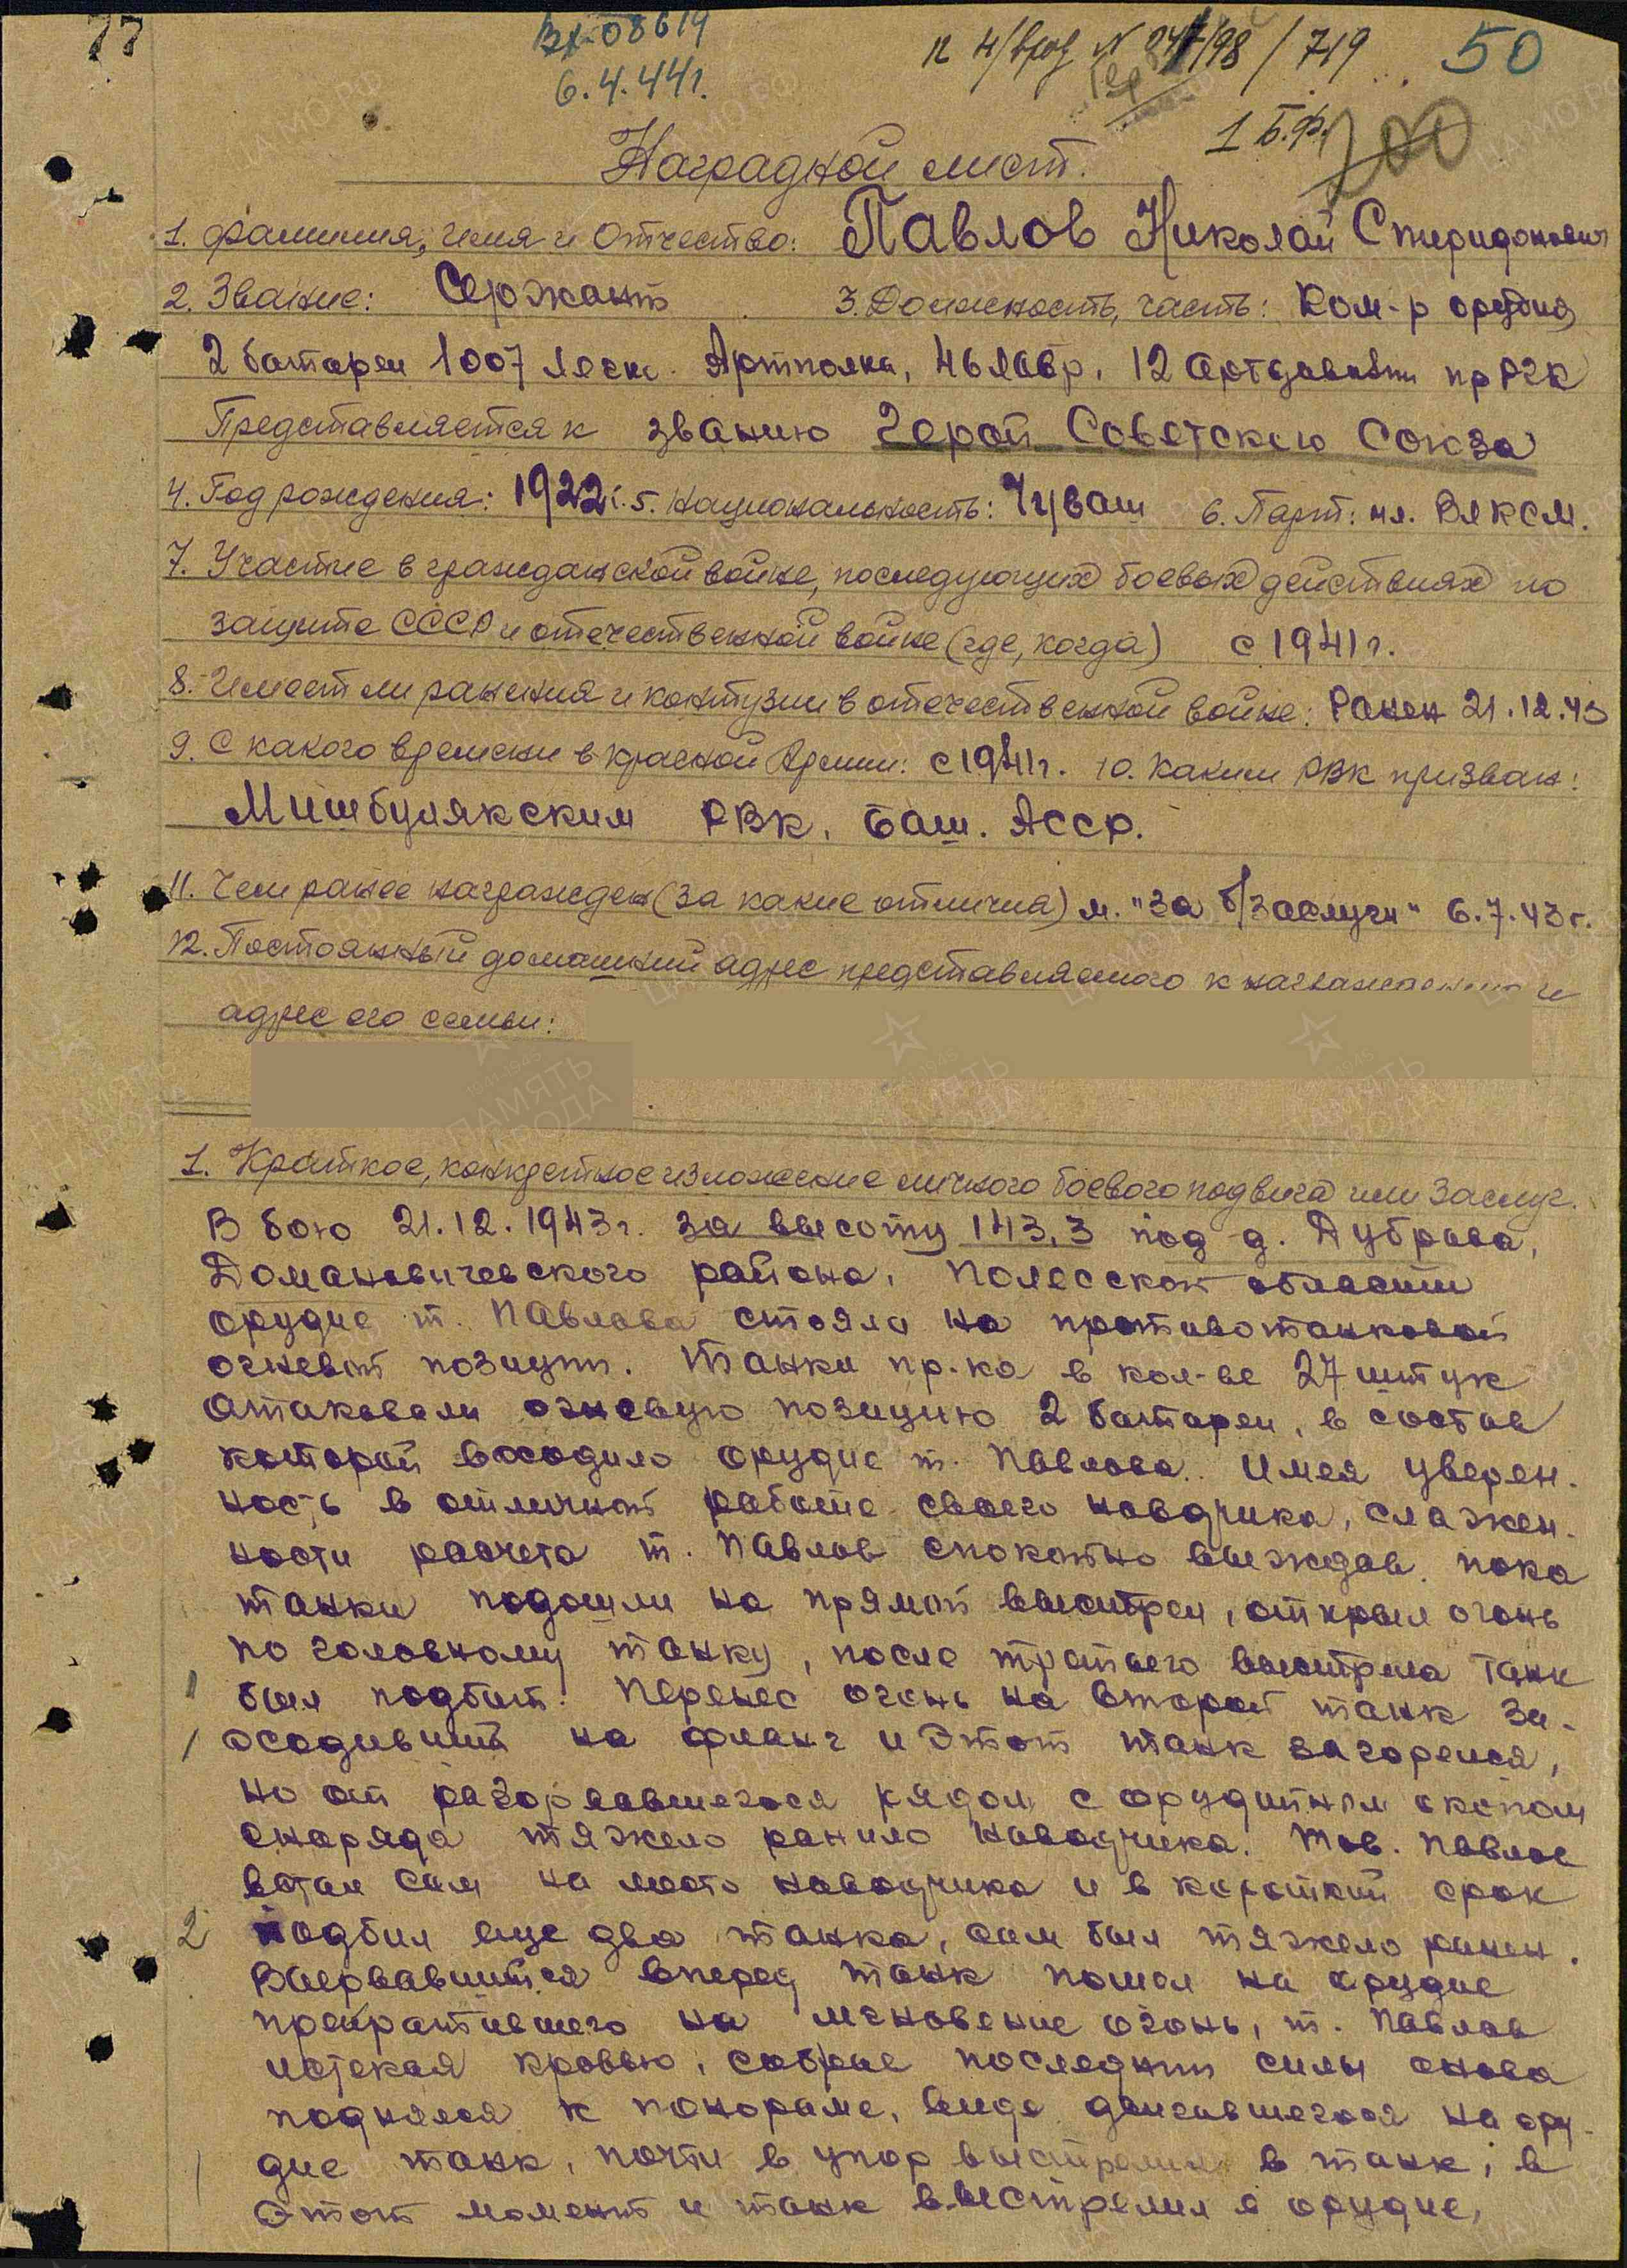 77
Вх-08619
6.4.44г.
50
1 Б.Ф.
200
Наградной лист.
1. Фамилия, имя и Отчество: Павлов Николай Спиридонович
2. Звание: Сержант 3. Должность, часть: Ком-р орудия
2 батареи 1007 легк. Артполка, 46 лабр. 12 артдивизии пр РГК
Представляется к званию Герой Советского Союза
4. Год рождения: 1922 г. 5. Национальность: Чуваш 6. Парт: чл. ВЛКСМ.
7. Участие в гражданской войне, последующих боевых действиях по
защите СССР и отечественной войне (где, когда) с 1941 г.
8. Имеет ли ранения и контузии в отечественной войне: Ранен 21.12.43
9. С какого времени в красной Армии: с 1941 г. 10. Каким РВК призван:
Мишбулякским РВК, Баш. АССР.
11. Чем ранее награжден (за какие отличия) м. "За б/заслуги" 6.7.43 г.
12. Постоянный домашний адрес представляемого к награждению и
адрес его семьи:
1. Краткое, конкретное изложение личного боевого подвига или заслуг.
В бою 21.12.1943 г. за высоту 143,3 под д. Дубрава,
Домановичевского района, Полесской области
орудие т. Павлова стояло на противотанковой
огневой позиции. Танки пр-ка в кол-ве 27 штук
атаковали огневую позицию 2 батареи, в состав
которой входило орудие т. Павлова. Имея уверен-
ность в отличной работе своего наводчика, слажен-
ности расчета т. Павлов спокойно выждав пока
танки подошли на прямой выстрел, открыл огонь
по головному танку, после третьего выстрела танк
был подбит. Перенес огонь на второй танк за-
ходивший на фланг и этот танк загорелся,
но от разорвавшегося рядом с орудийным окопом
снаряда тяжело ранило наводчика. Тов. Павлов
встал сам на место наводчика и в короткий срок
2 подбил еще два танка, сам был тяжело ранен.
Вырвавшийся вперед танк пошел на орудие
прекратившего на мгновение огонь, т. Павлов
истекая кровью, собрав последнии силы снова
поднялся к панораме, видя двигавшегося на ору-
дие танк, почти в упор выстрелил в танк, в
этот момент и танк выстрелил в орудие,